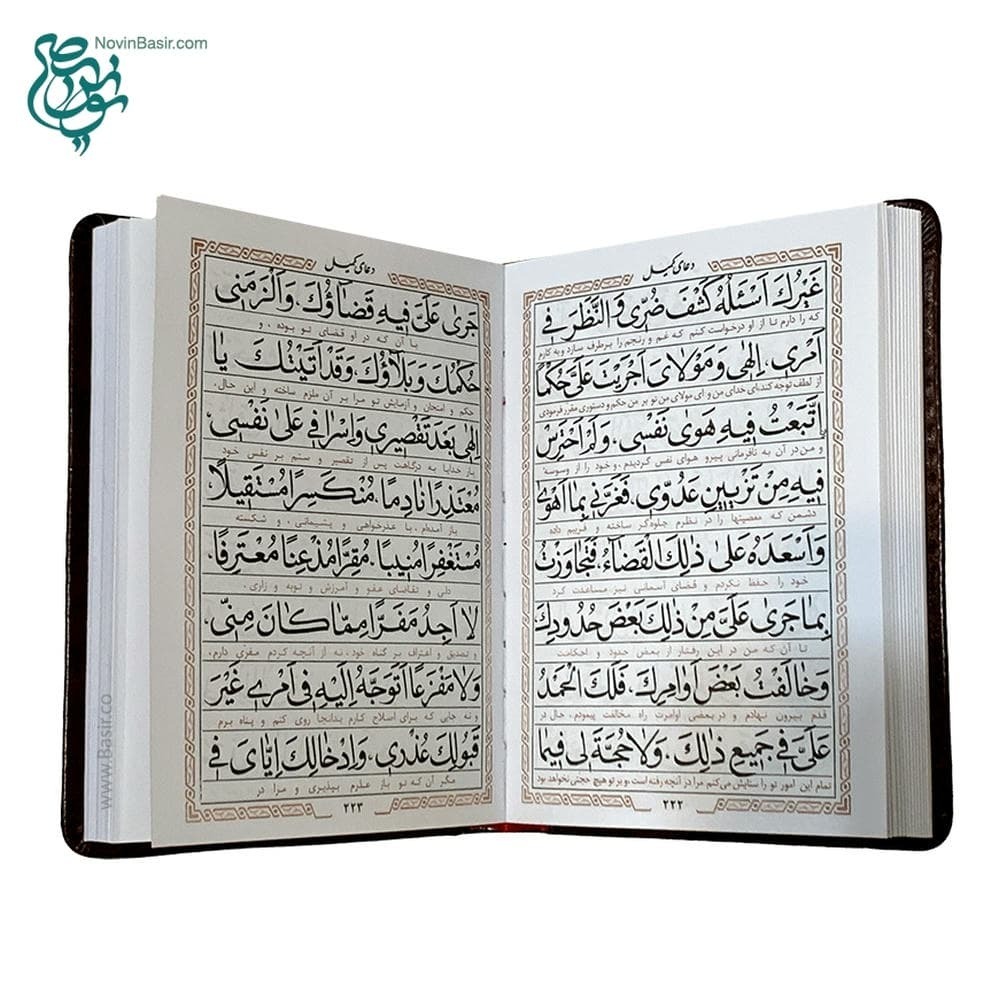 NovinBasir.com
دعای کمیل
غَيْرُكَ اَسْئَلُهُ كَشْفَ ضُرّى وَالنَّظَرَ فى
که را دارم تا از او درخواست کنم که غم و رنجم را برطرف سازد و به کارم
اَمْرى، اِلهى وَمَوْلاىَ اَجْرَيْتَ عَلَىَّ حُكْماً
از لطف توجه کند،ای خدای من و ای مولای من تو بر من حکم و دستوری مقرر فرمودی
اتَّبَعْتُ فيهِ هَوى نَفْسى، وَلَمْ اَحْتَرِسْ
و من در آن به نافرمانی پیرو هوای نفس گردیدم، و خود را از وسوسه
فيهِ مِنْ تَزْيينِ عَدُوّى، فَغَرَّنى بِما اَهْوى
دشمن که معصیتها را در نظرم جلوه‌گر ساخته و فریبم داده
وَاَسْعَدَهُ عَلى ذلِكَ الْقَضاءُ، فَتَجاوَزْتُ
خود را حفظ نکردم و قضای آسمانی نیز مساعدت کرد
بِما جَرى عَلَىَّ مِنْ ذلِكَ بَعْضَ حُدُودِكَ
تا آن که من در این رفتار از بعض حدود و احکامت
وَخالَفْتُ بَعْضَ اَوامِرِكَ، فَلَكَ الْحَمْدُ
قدم بیرون نهادم و در بعضی اوامرت راه مخالفت پیمودم، حال در
عَلَىَّ فى جَميعِ ذلِكَ، وَلا حُجَّةَ لى فيما
تمام این امور تو را ستایش می‌کنم مرا در آنچه رفته است،و بر تو هیچ حجتی نخواهد بود
٢٢٢
دعای کمیل
جَرى عَلَىَّ فيهِ قَضآؤُكَ، وَاَلْزَمَنى
با آن که در او قضای تو بوده، و
حُكْمُكَ وَبَلآؤُكَ وَقَدْ اَتَيْتُكَ يا
حکم و امتحان و آزمایش تو مرا بر آن ملزم ساخته و این حال،
اِلهى بَعْدَ تَقْصيرى وَاِسْرافى عَلى نَفْسى
باز خدایا به درگاهت پس از تقصیر و ستم بر نفس خود
مُعْتَذِراً نادِماً، مُنْكَسِراً مُسْتَقيلاً
باز آمده‌ام، با عذرخواهی و پشیمانی، و شکسته
مُسْتَغْفِراً مُنيباً، مُقِرّاً مُذْعِناً مُعْتَرِفاً،
دلی و تقاضای عفو و آمرزش و توبه و زاری،
لا اَجِدُ مَفَرّاً مِمّا كانَ مِنّى،
و تصدیق و اعتراف بر گناه خود، نه از آنچه کردم مفری دارم،
وَلا مَفْزَعاً اَتَوَجَّهُ اِلَيْهِ فى اَمْرى غَيْرَ
و نه جایی که برای اصلاح کارم بدانجا روی کنم و پناه برم
قَبُولِكَ عُذْرى، وَاِدْخالِكَ اِيّاىَ فى
مگر آن که تو باز عذرم بپذیری و مرا در
٢٢٣
www.Basir.co